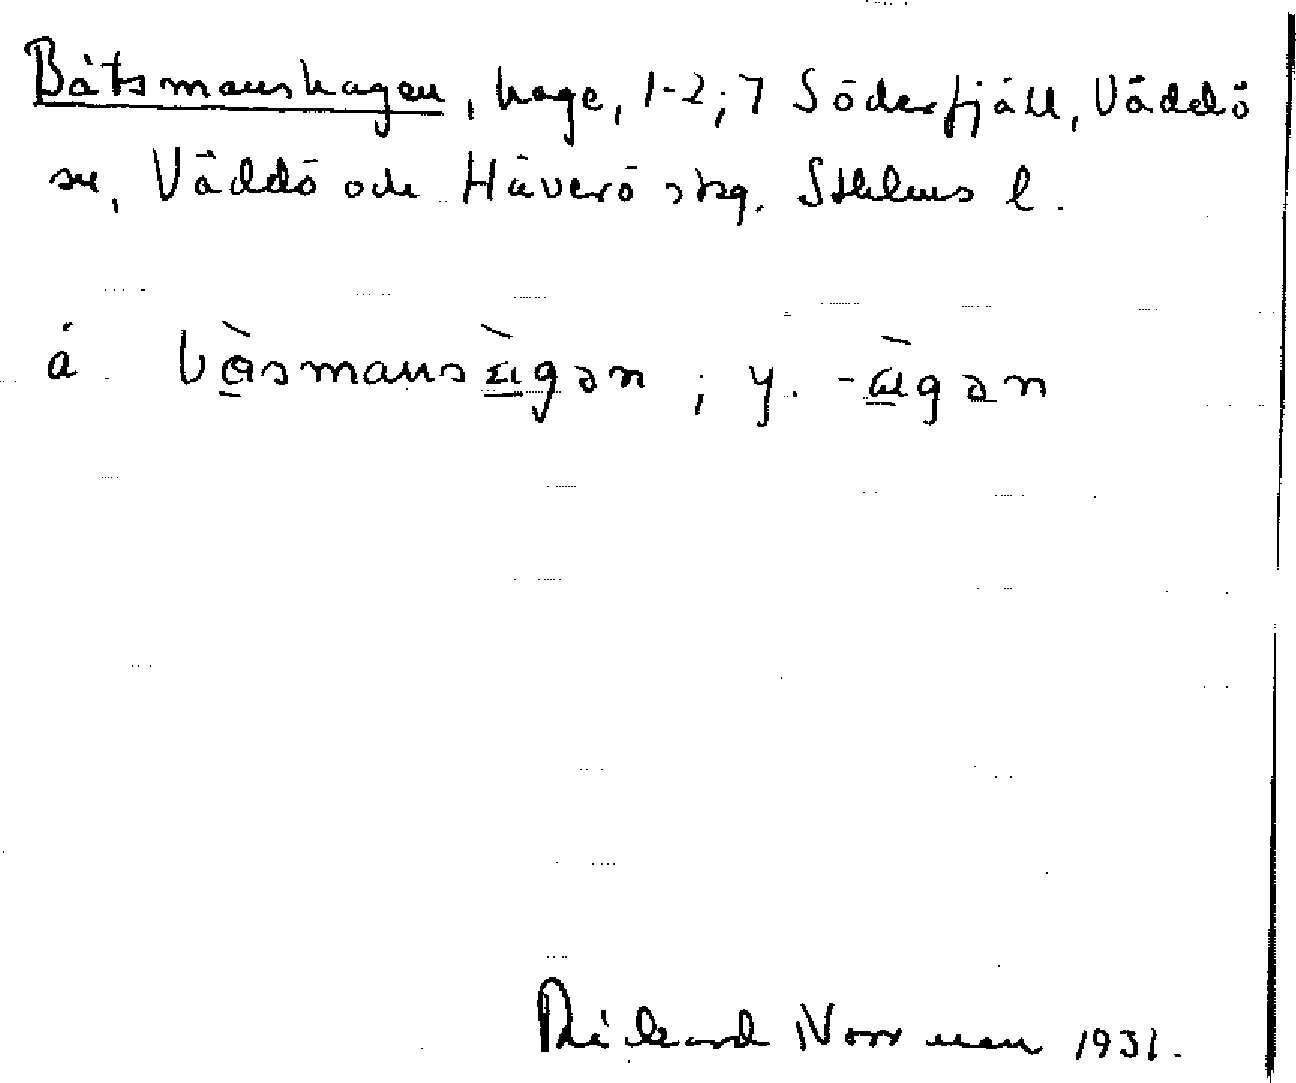 Båtsmanshagen, hage, 1-2; 7 Söderfjäll, Väddö
sn, Väddö och Häverö skg. Sthlms l.
å bàsmansàgən ; y. -àgən
Rickard Norrman 1931.